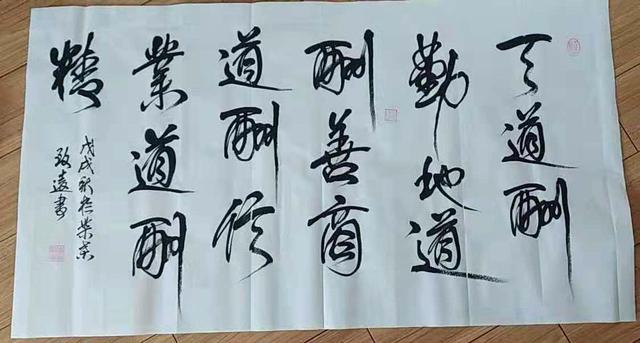 天道酬
勤地道
酬善商
道酬信
業道酬
精
戊戌秋於北京
致遠書